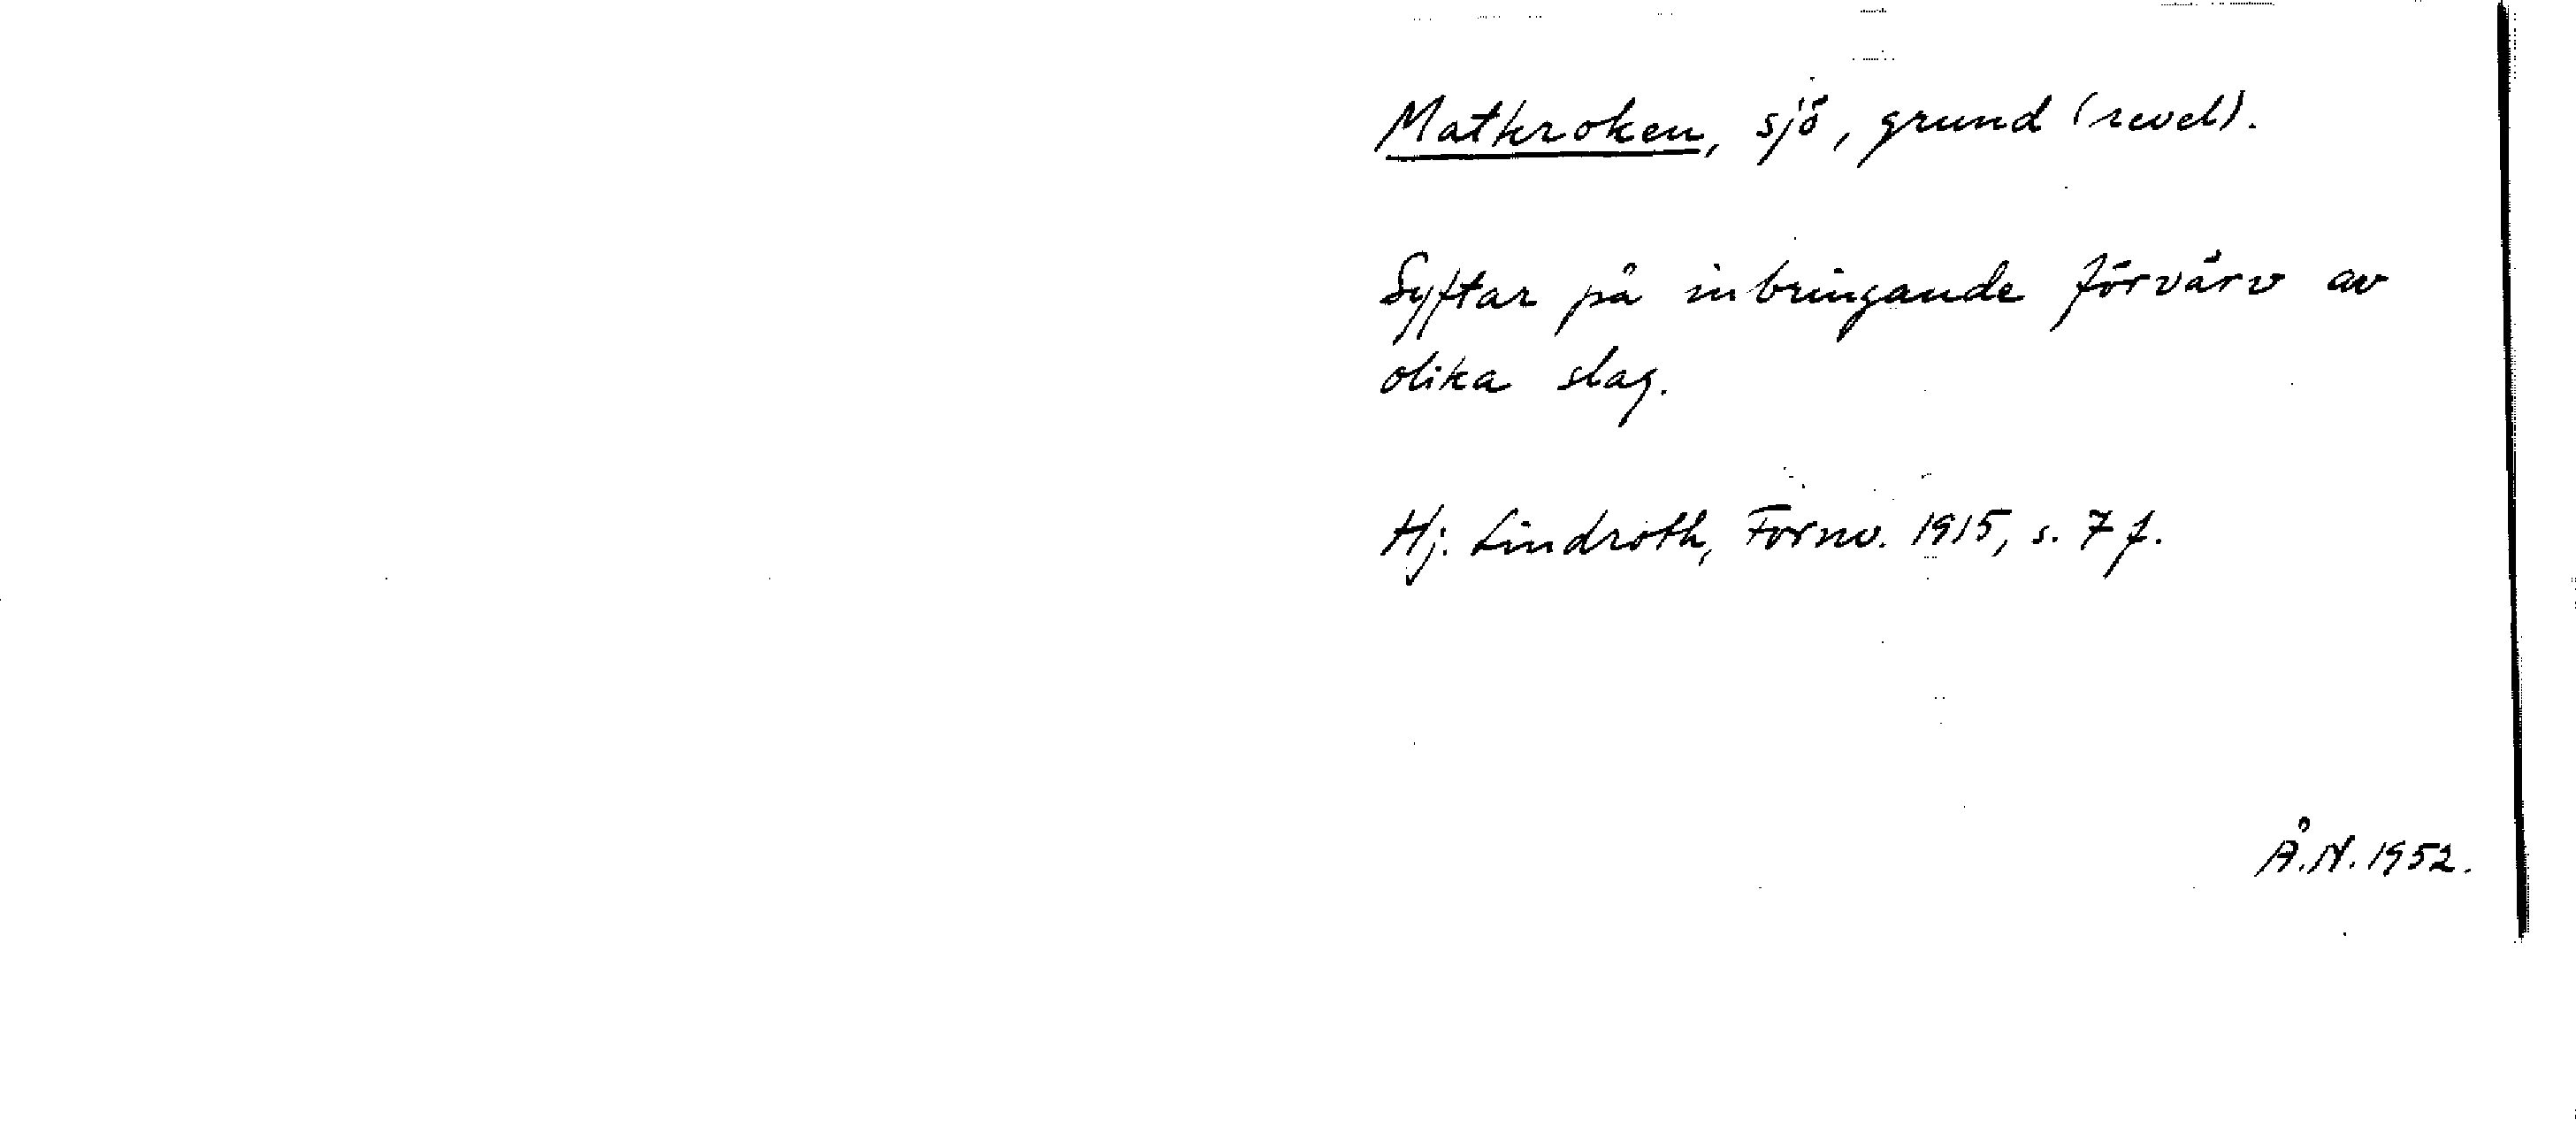 Matkroken, sjö, grund (revel).
Syftar på inbringande förvärv av
olika slag.
Hj. Lindroth, Fornv. 1915, s. 7 f.
Å.N. 1952.